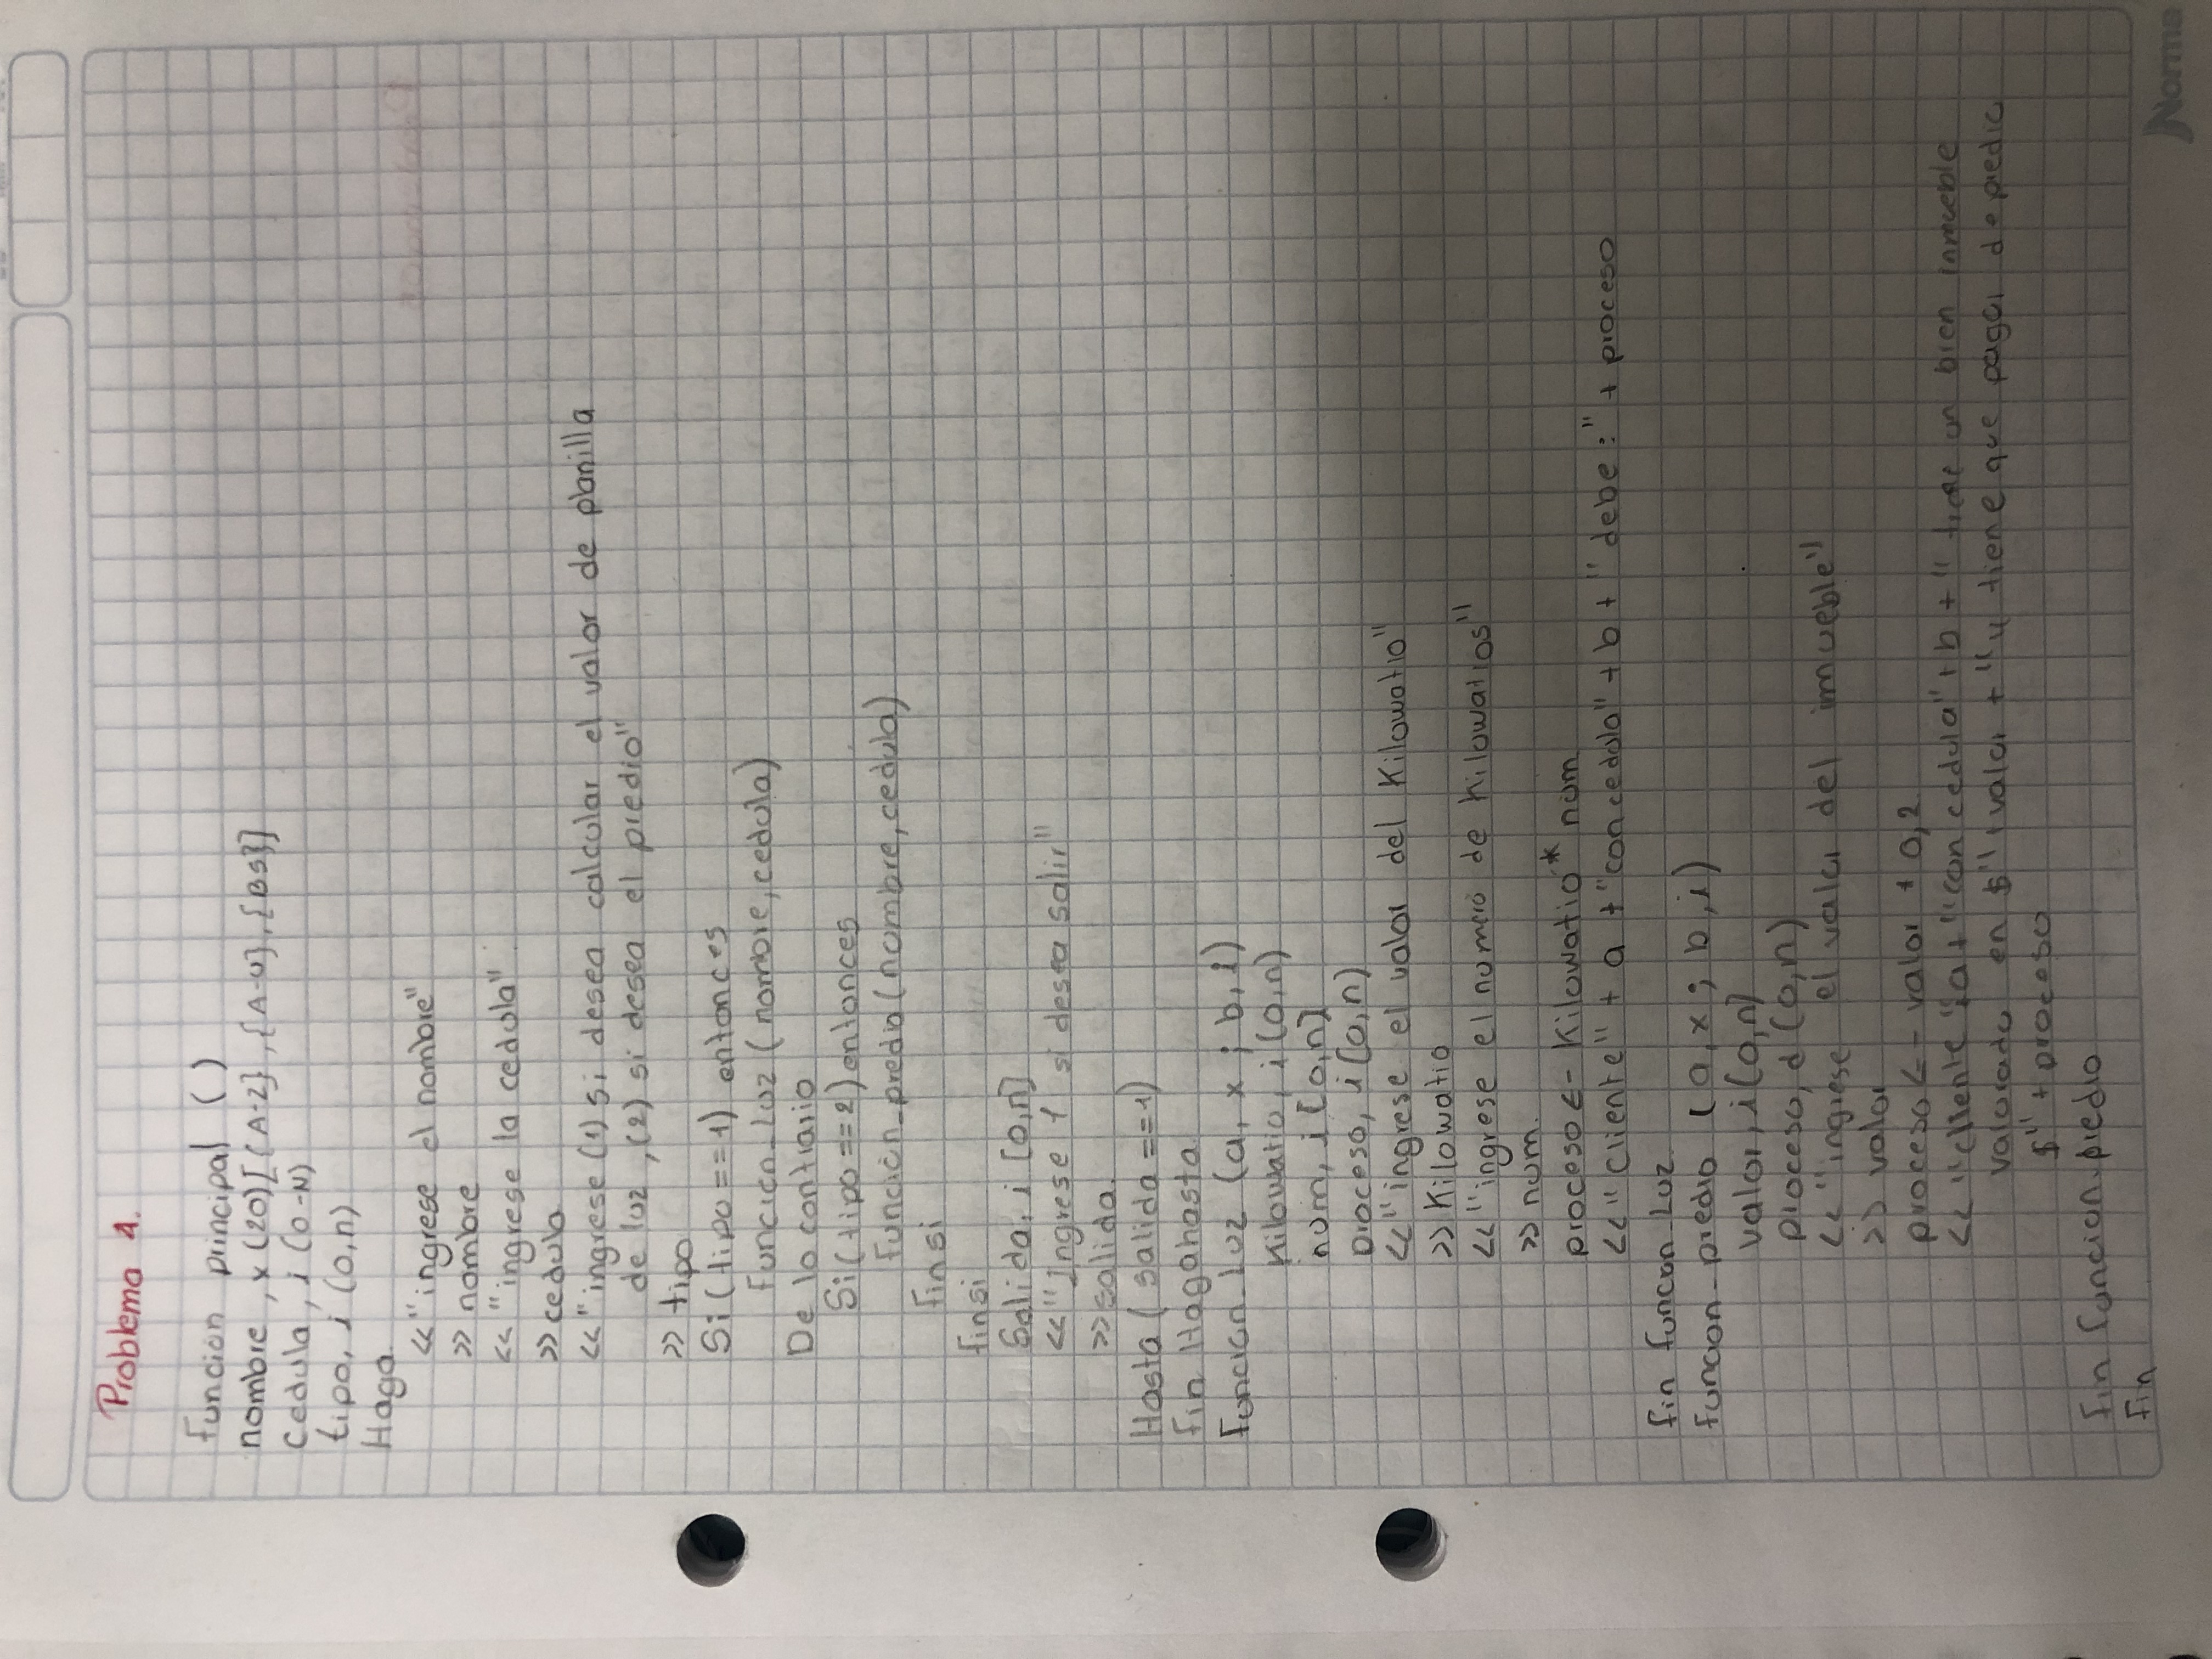 Problema 1.
funcion principal ( )
nombre , x (20) [{A-Z} , {A-U}, {BS}]
Cedula, i (0-N)
tipo, i (0,n)
Haga
<<"ingrese el nombre"
>> nombre
<< "ingrese la cedula"
>> cedula
<<"ingrese (1) si desea calcular el valor de planilla
de luz , (2) si desea el predio"
>> tipo
Si (tipo == 1) entonces
Función_Luz (nombre, cedula)
De lo contrario
Si (tipo == 2) entonces
función_predio (nombre, cedula)
finsi
finsi
Salida, i [0,n]
<<"Ingrese 1 si desea salir"
>> salida
Hasta ( salida == 1)
fin Hagahasta
Funcion_Luz (a, x ; b, i)
Kilowatio, i (0,n)
num, i [0,n]
proceso, i (0,n)
<<"ingrese el valor del Kilowatio"
>> Kilowatio
<<"ingrese el numero de Kilowatios"
>> num.
proceso <- Kilowatio * num
<<"Cliente" + a + "con cedula" + b + " debe :" + proceso
fin funcon_Luz
funcion_predio (a, x ; b, i)
valor, i (0,n)
proceso, d (0,n)
<< "ingrese el valor del imueble"
>> valor
proceso <- valor * 0,2
<< "cliente "+a+"con cedula"+b+" tiene un bien inmueble
valorado en $"+valor+"y tiene que pagar de predio
$" + proceso
fin funcion_predio
Fin
Norma